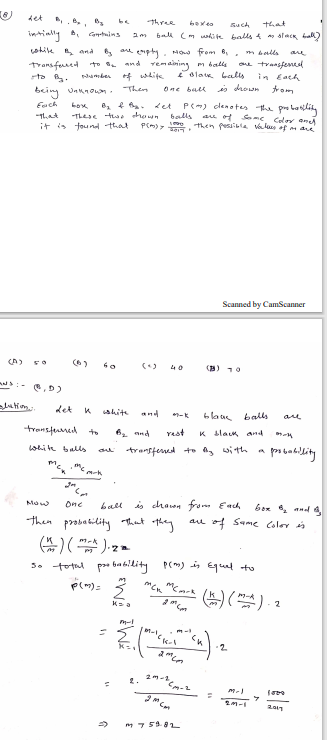 (8) Let B₁, B₂, B₃ be three boxes such that
initially B₁ contains 2m ball (m white balls & m black ball)
while B₂ and B₃ are empty. Now from B₁, m balls are
transferred to B₂ and remaining m balls are transferred
to B₃. Number of white & black balls in each
being unknown. Then one ball is drawn from
each box B₂ & B₃. Let P(m) denotes the probability
that these two drawn balls are of same color and
it is found that P(m) > 1000/2017, then possible values of m are
Scanned by CamScanner
(A) 50 (B) 60 (C) 40 (D) 70
Ans :- (B, D)
Solution:- Let K white and m-k black balls are
transferred to B₂ and rest K black and m-k
white balls are transferred to B₃ with a probability
ᵐCₖ ᵐCₘ₋ₖ / ²ᵐCₘ
Now one ball is drawn from each box B₂ and B₃
then probability that they are of same color is
(k/m) ((m-k)/m) . 2
So total probability P(m) is equal to
P(m) = Σ_{k=0}^{m} ᵐCₖ ᵐCₘ₋ₖ / ²ᵐCₘ (k/m) ((m-k)/m) . 2
= Σ_{k=1}^{m-1} (ᵐ⁻¹Cₖ₋₁ . ᵐ⁻¹Cₖ / ²ᵐCₘ) . 2
= 2 . ²ᵐ⁻²Cₘ₋₂ / ²ᵐCₘ = (m-1)/(2m-1) > 1000/2017
⇒ m > 59.82